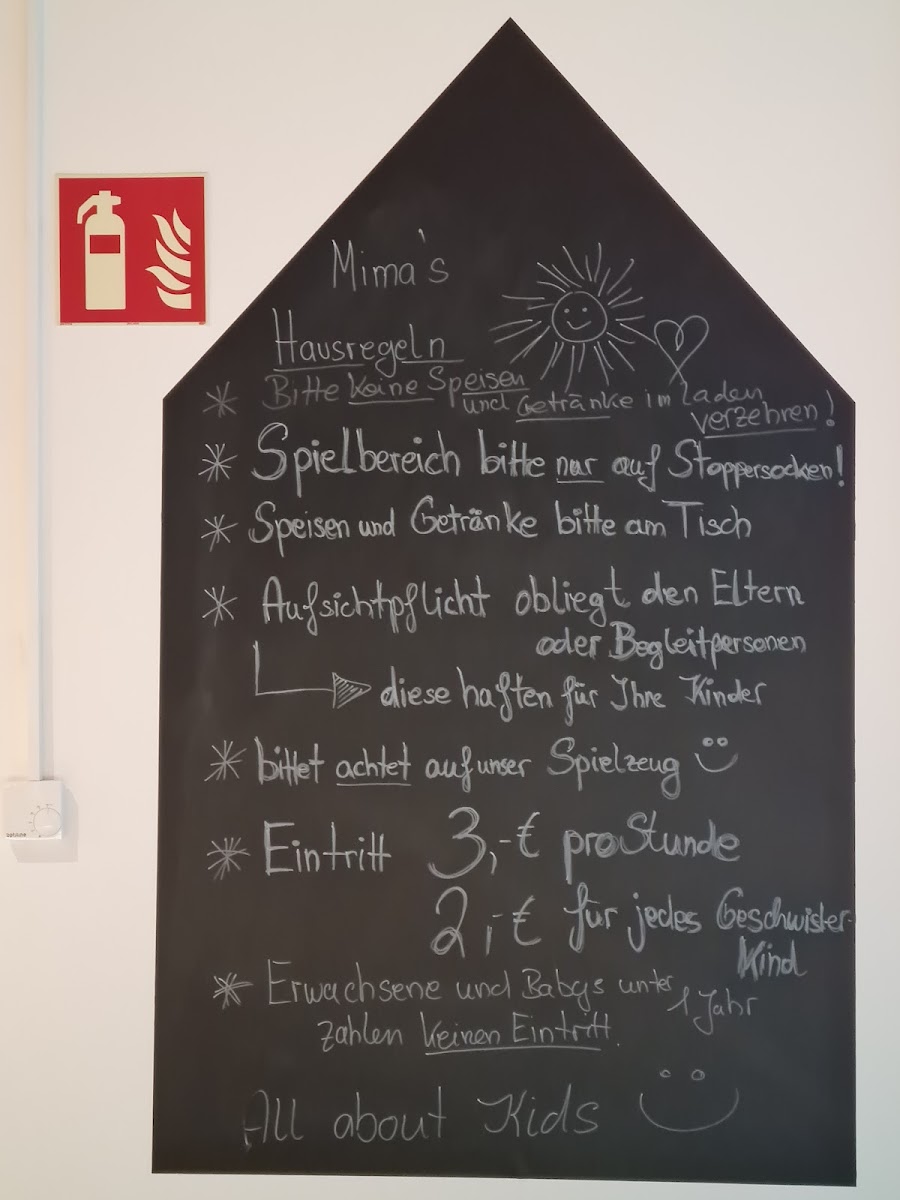 Mima's
Hausregeln
* Bitte keine Speisen
und Getränke im Laden
verzehren!
* Spielbereich bitte nur auf Stoppersocken!
* Speisen und Getränke bitte am Tisch
* Aufsichtpflicht obliegt den Eltern
oder Begleitpersonen
diese haften für Ihre Kinder
* bittet achtet auf unser Spielzeug
* Eintritt 3,-€ pro Stunde
2,-€ für jedes Geschwister-
Kind
* Erwachsene und Babys unter
1 Jahr
zahlen keinen Eintritt.
All about Kids